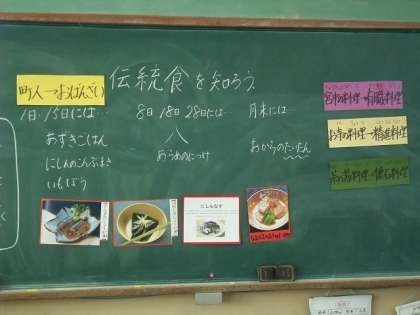 伝統食を知ろう
町人→おばんざい
1日・15日には…
あずきごはん
にしんのこんぶまき
いもぼう
8日18日28日には…
八
あらめのにつけ
月末には
おからのたいたん
宮中の料理→有職料理
お寺の料理→精進料理
茶の湯料理→懐石料理
にしんなす